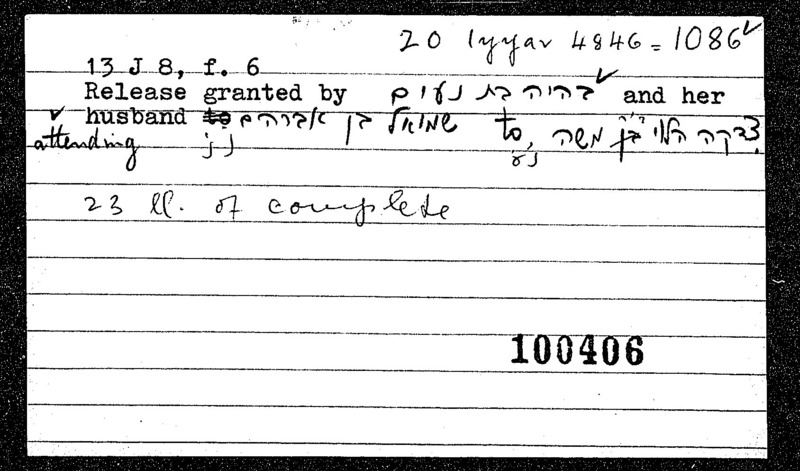 20 Iyyar 4846 = 1086
13 J 8, f. 6
Release granted by בהיה בת נעים and her
husband שמואל בן אברהם to צדקה הלוי בן משה,
attending
23 ll. of complete
100406